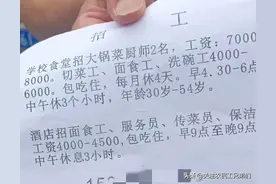 招工
学校食堂招大锅菜厨师2名，工资：7000
8000。切菜工、面食工、洗碗工4000-
6000。包吃住，每月休4天。早4.30-6点
中午休3个小时，年龄30岁-54岁。
酒店招面食工、服务员、传菜员、保洁
工资4000-4500,包吃住，早9点至晚9点
中午休息3小时。